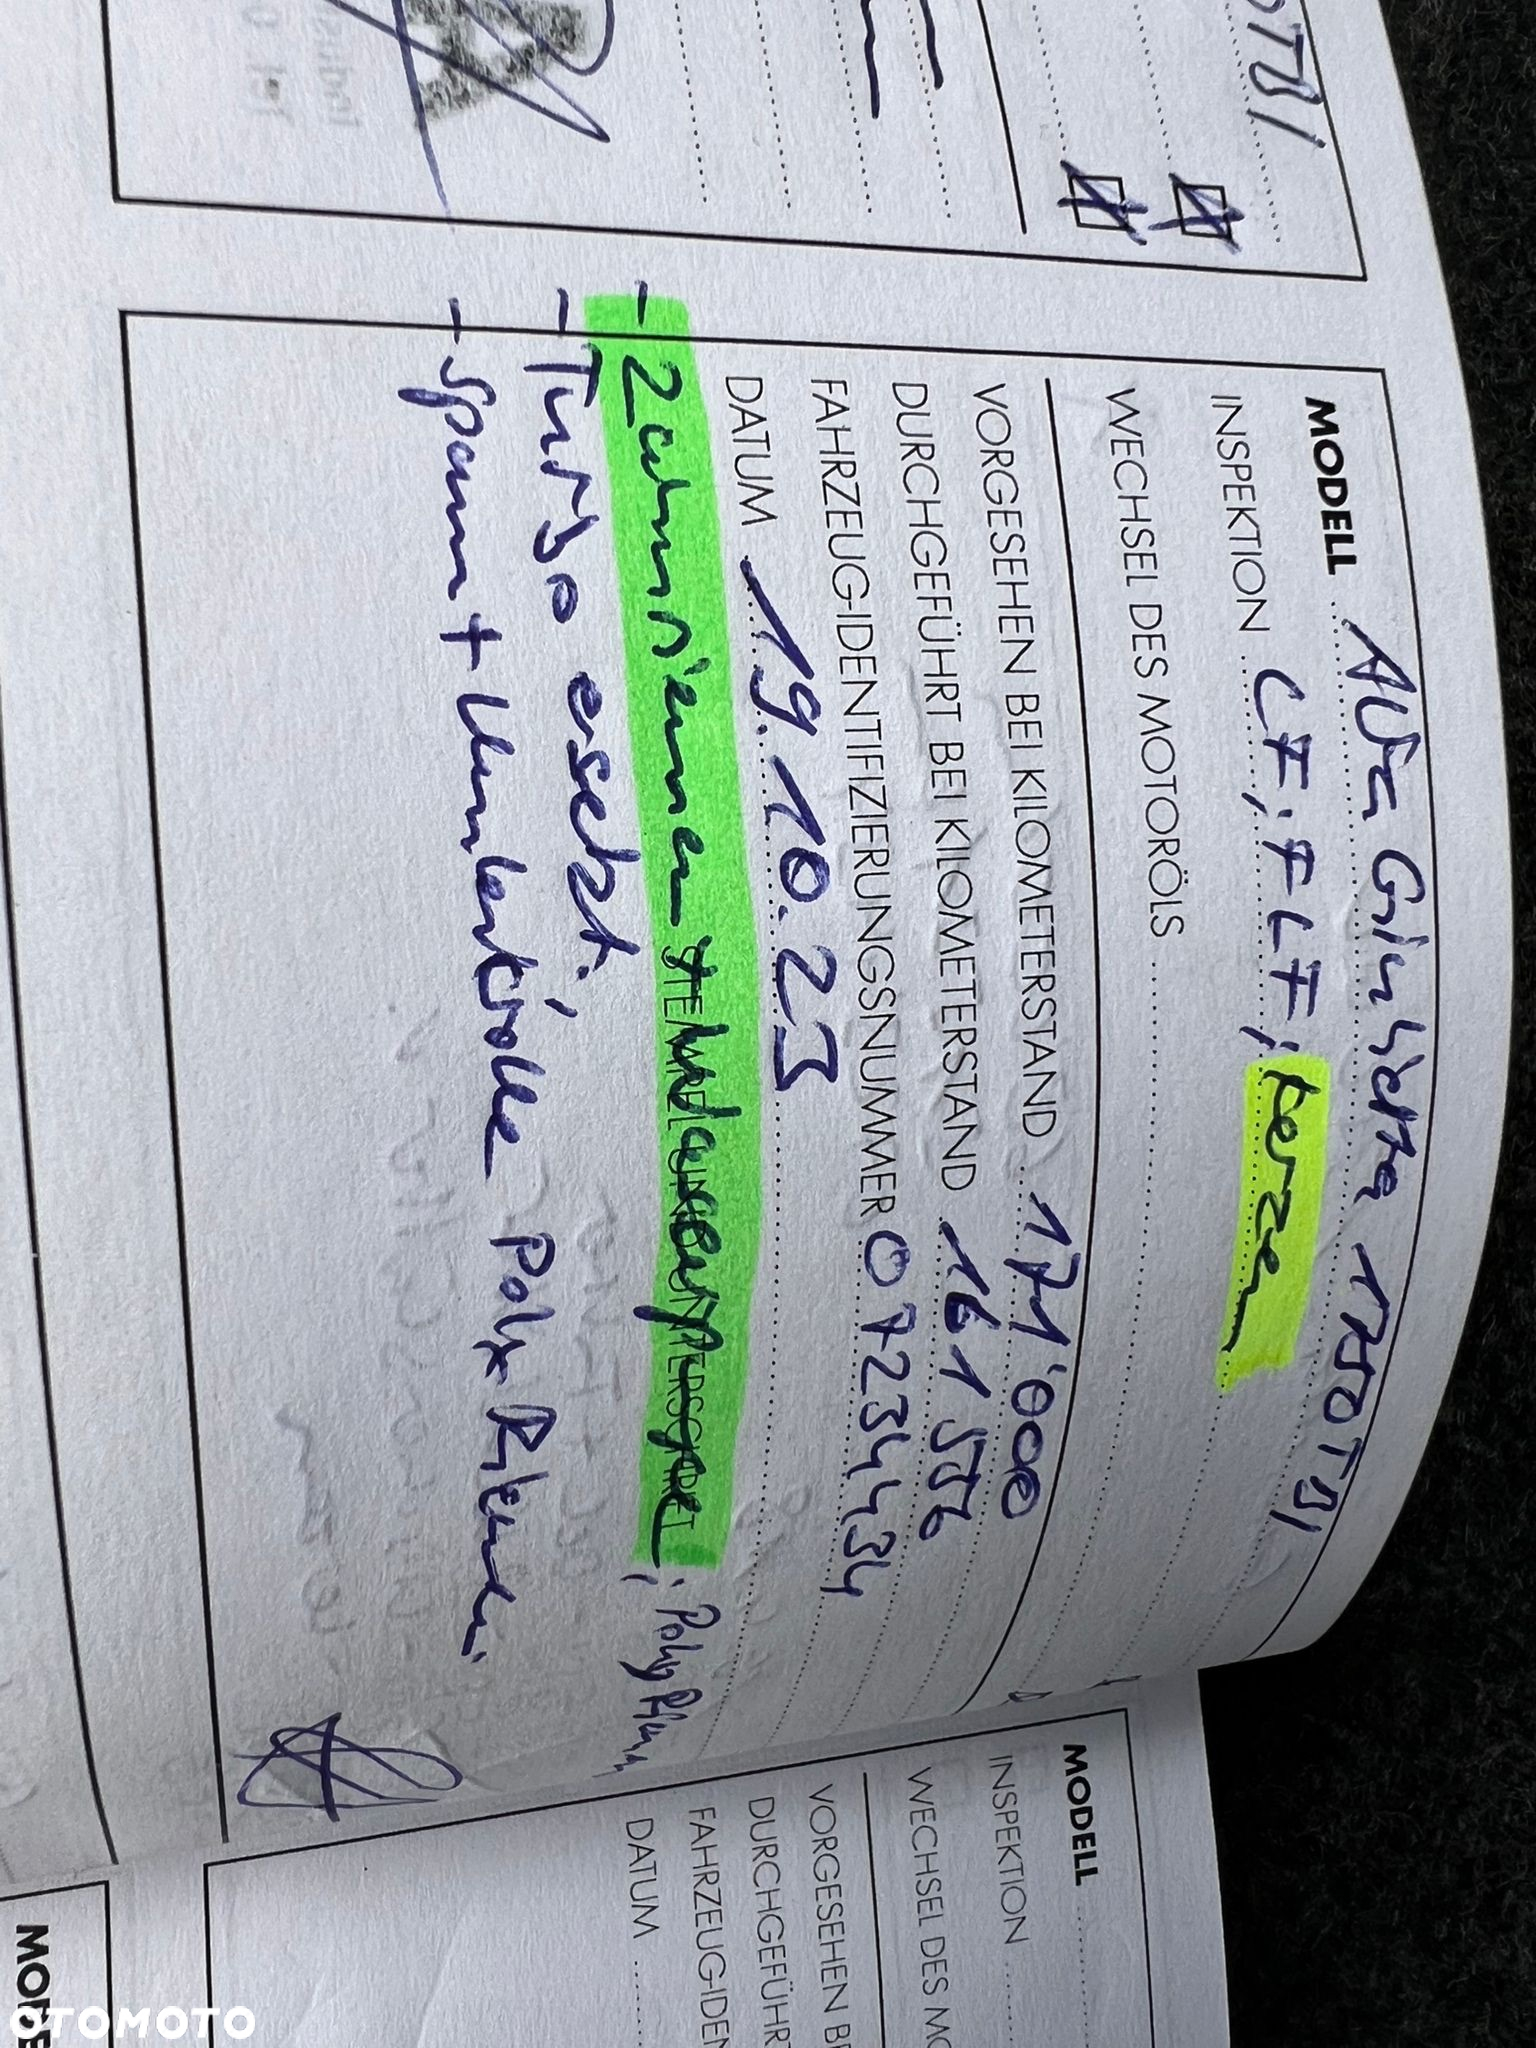 OTTBI
MODELL Alfa Giulietta 1750TBI
INSPEKTION CF, FLF, Kerzen
WECHSEL DES MOTORÖLS
VORGESEHEN BEI KILOMETERSTAND 171'000
DURCHGEFÜHRT BEI KILOMETERSTAND 161 556
FAHRZEUG-IDENTIFIZIERUNGSNUMMER 07234434
DATUM 19.10.23
- Zahnriemen STEMPEL UND UNTERSCHRIFT ; Poly Riem
- Turbo esetzt.
- Spann + Umlenkrolle Poly Riemen
MODELL
INSPEKTION
WECHSEL DES MO
VORGESEHEN BE
DURCHGEFÜHRT
FAHRZEUG-IDEN
DATUM
MODE
OTOMOTO